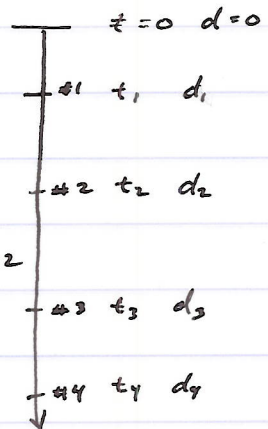 t=0 d=0
#1 t₁ d₁
#2 t₂ d₂
2
#3 t₃ d₃
#4 t₄ d₄